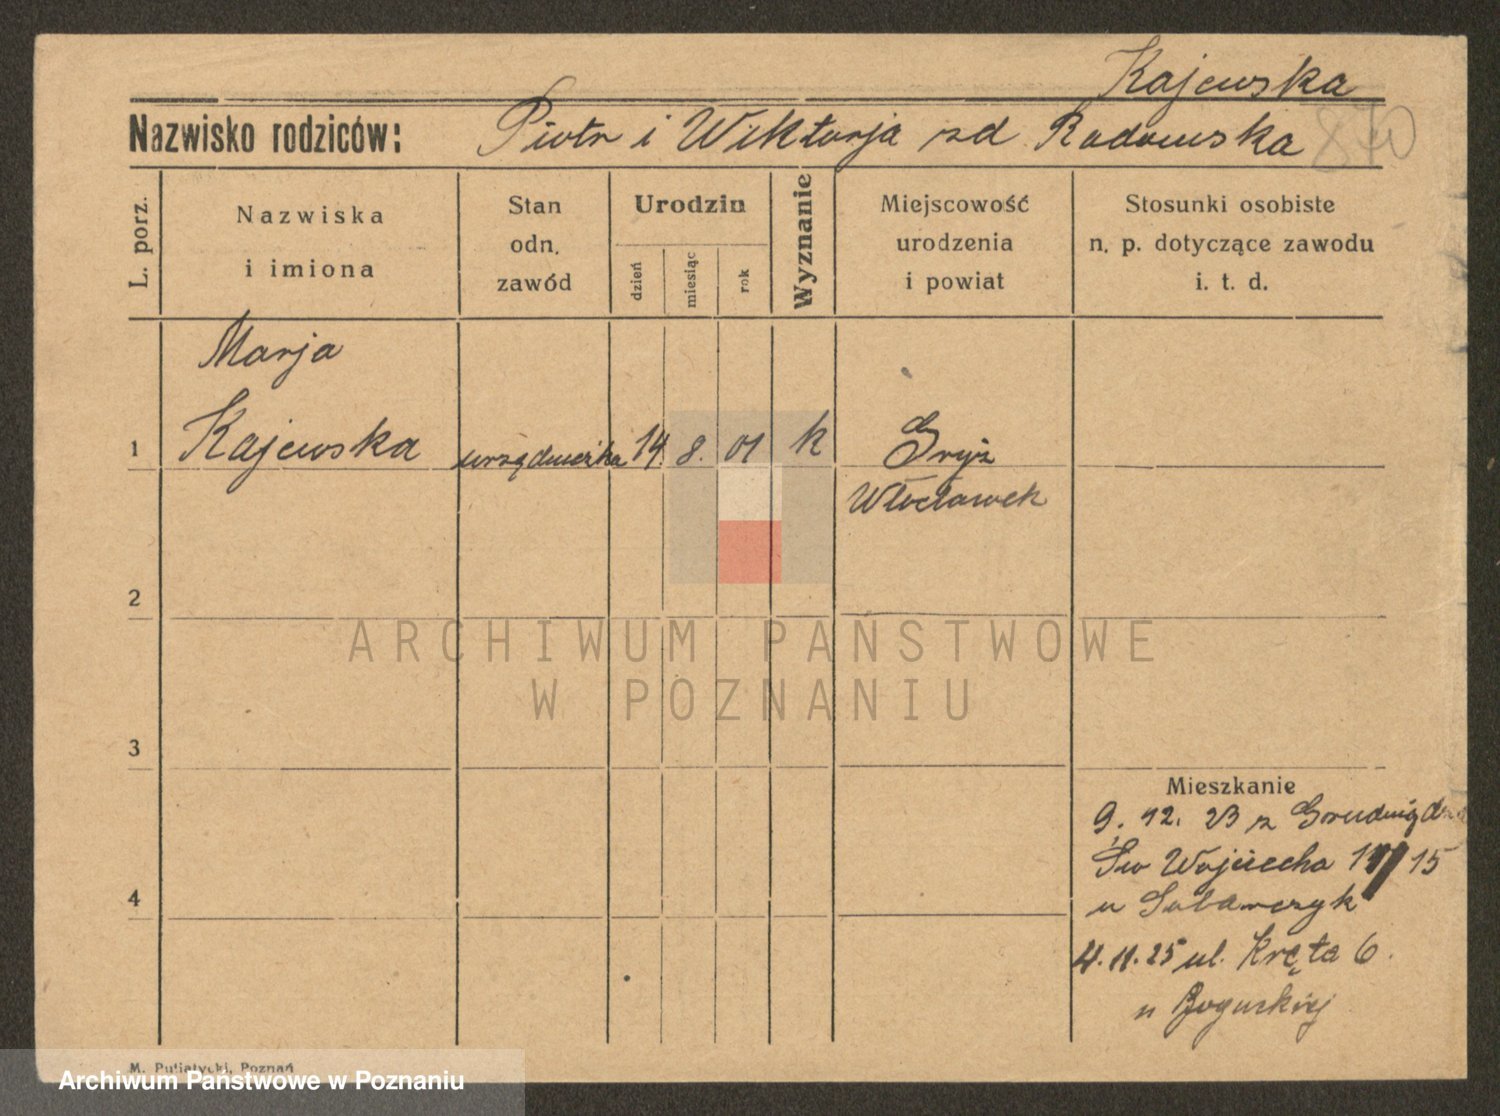 Kajewska
Nazwisko rodziców: Piotr i Wiktorja zd Radomska
840
L. porz.
Nazwiska
i imiona
Stan
odn.
zawód
Urodzin
dzień
miesiąc
rok
Wyznanie
Miejscowość
urodzenia
i powiat
Stosunki osobiste
n. p. dotyczące zawodu
i. t. d.
Marja
1 Kajewska urzędniczka 14. 8. 01 k
Włocławek
2
ARCHIWUM PAŃSTWOWE
W POZNANIU
3
Mieszkanie
9. 12. 23 z
Św Wojciecha 15
4
u
4. 11. 25 ul. Kręta 6.
u Boguckiej
M. Putiatycki, Poznań
Archiwum Państwowe w Poznaniu